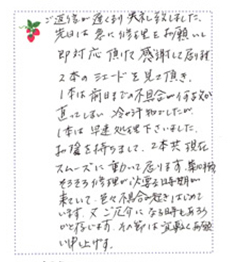 ご返信が遅くなり失礼致しました。
先日は急に修理をお願いし
即対応頂けて感謝して居ります
2本のシェードを見て頂き、
1本は前日までの不具合が何故か
直ってしまい冷や汗ものでしたが、
1本は早速処理下さいました。
お陰を持ちまして、2本共現在
スムーズに動いて居ります。
そろそろ修理が必要な時期が
来ていて、色々不具合が起きはじめて
います。又ご厄介になる時もあろう
かと存じます。その節は宜敷くお願
い申し上げます。